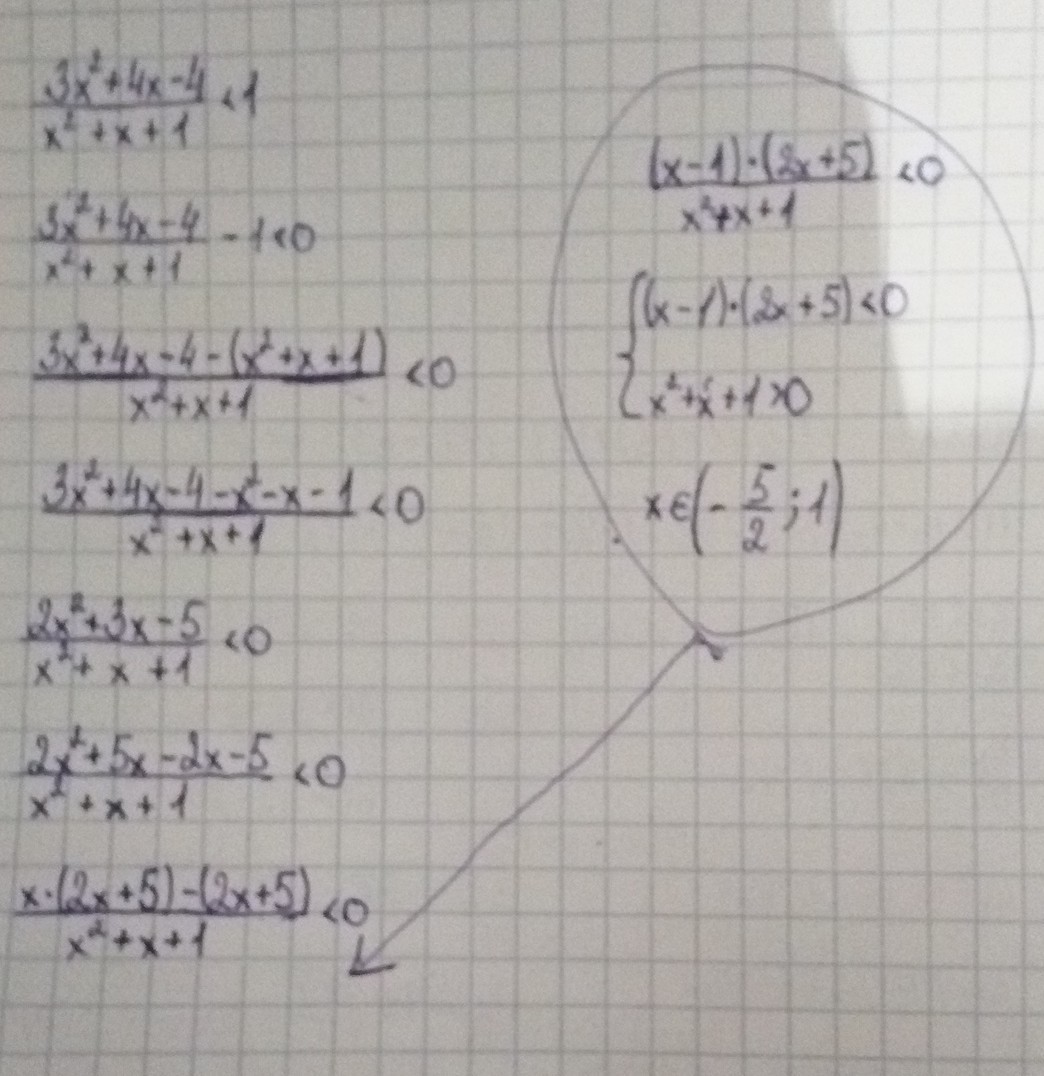 (3x²+4x-4)/(x²+x+1) <1
(3x²+4x-4)/(x²+x+1) -1<0
(3x²+4x-4-(x²+x+1))/(x²+x+1) <0
(3x²+4x-4-x²-x-1)/(x²+x+1) <0
(2x²+3x-5)/(x²+x+1) <0
(2x²+5x-2x-5)/(x²+x+1) <0
(x·(2x+5)-(2x+5))/(x²+x+1) <0
((x-1)·(2x+5))/(x²+x+1) <0
{(x-1)·(2x+5)<0
x²+x+1>0
x∈(-5/2;1)